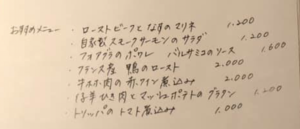 おすすめメニュー
・ローストビーフとなすのマリネ 1.200
・自家製スモークサーモンのサラダ 1.200
・フォアグラのポワレ バルサミコのソース 1.600
・フランス産 鴨のロースト 2.000
・牛ホホ肉の赤ワイン煮込み 2.000
・仔羊ひき肉とマッシュポテトのグラタン 1.200
・トリッパのトマト煮込み 1.000